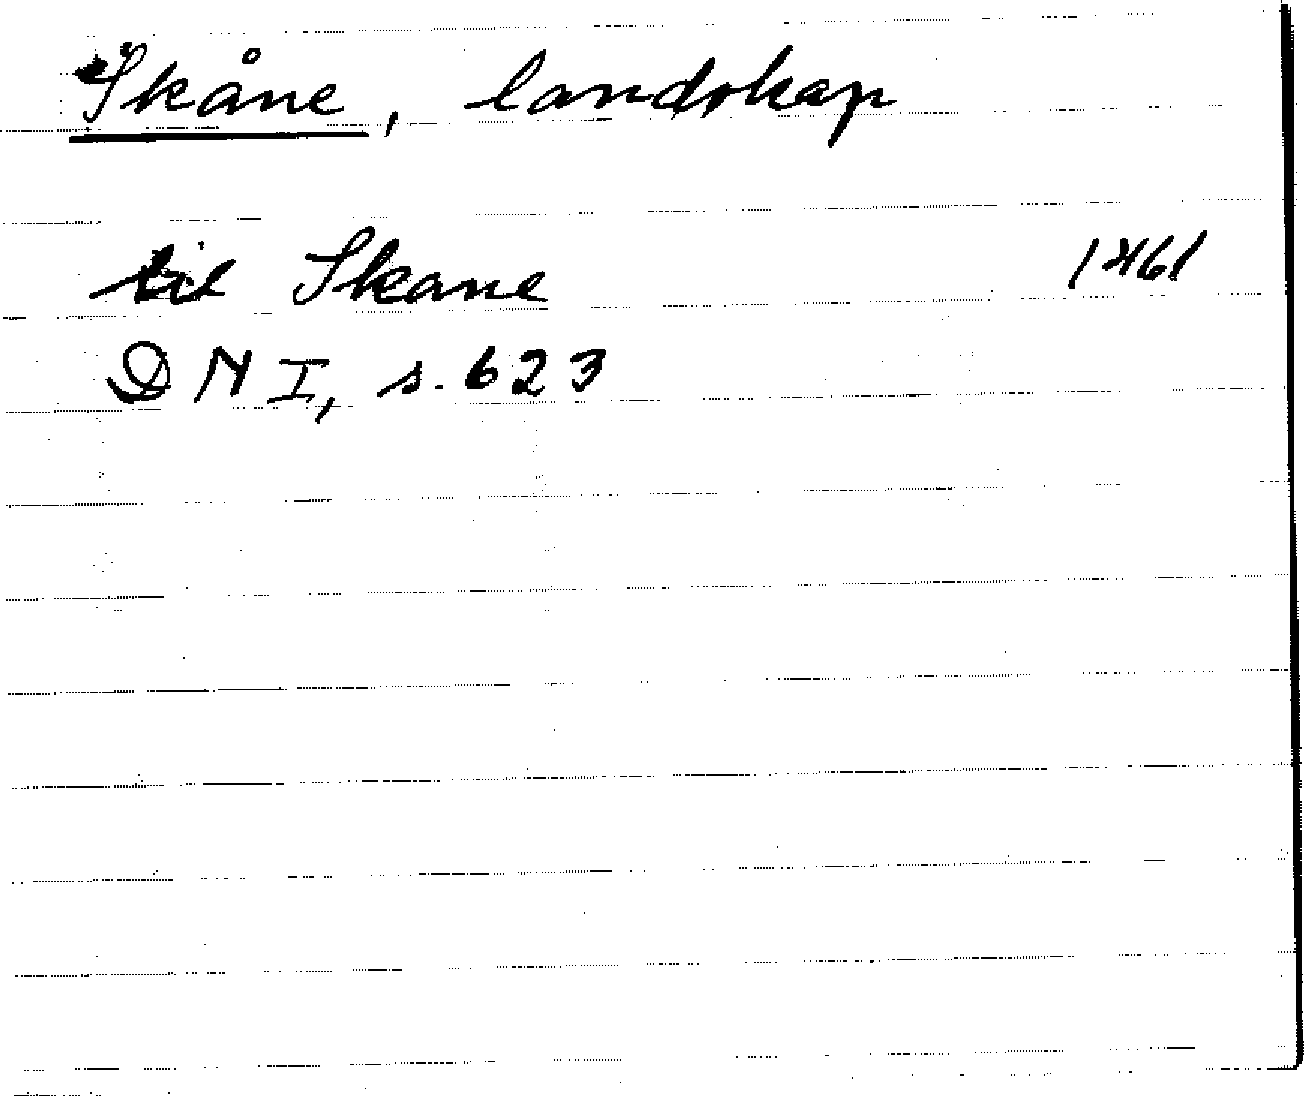 Skåne, landskap
til Skane 1461
DN I, s. 623